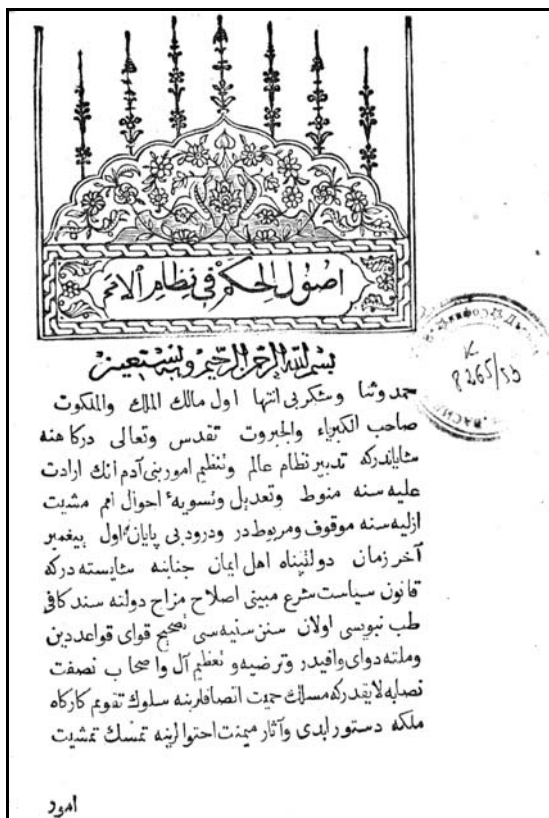 اصول الحكم فى نظام الامم
بسم الله الرحمن الرحيم وبه نستعين
حمد وثنا وشكر بى انتها اول مالك الملك والملكوت
صاحب الكبرياء والجبروت تقدس وتعالى دركاهنه
شاياندركه تدبير نظام عالم وتنظيم امور بنى آدم انك ارادت
عليه سنه منوط وتعديل وتسويۀ احوال امم مشيت
ازليه سنه موقوف ومربوطدر ودرود بى پايان اول پيغمبر
آخر زمان دولتپناه اهل ايمان جنابنه شايسته دركه
قانون سياست شرع مبينى اصلاح مزاج دولته سند كافى
طب نبويسى اولان سنن سنيه سى تصحيح قواى قواعد دين
وملته دواى وافيدر وترضيه و تعظيم آل واصحاب نصفت
نصابه لايقدركه مسالك حميت انصافلرينه سلوك تقويم كارگاه
ملكه دستور ابدى وآثار ميمنت احتوالرينه تمسك تمشيت
امور
К
8265/53